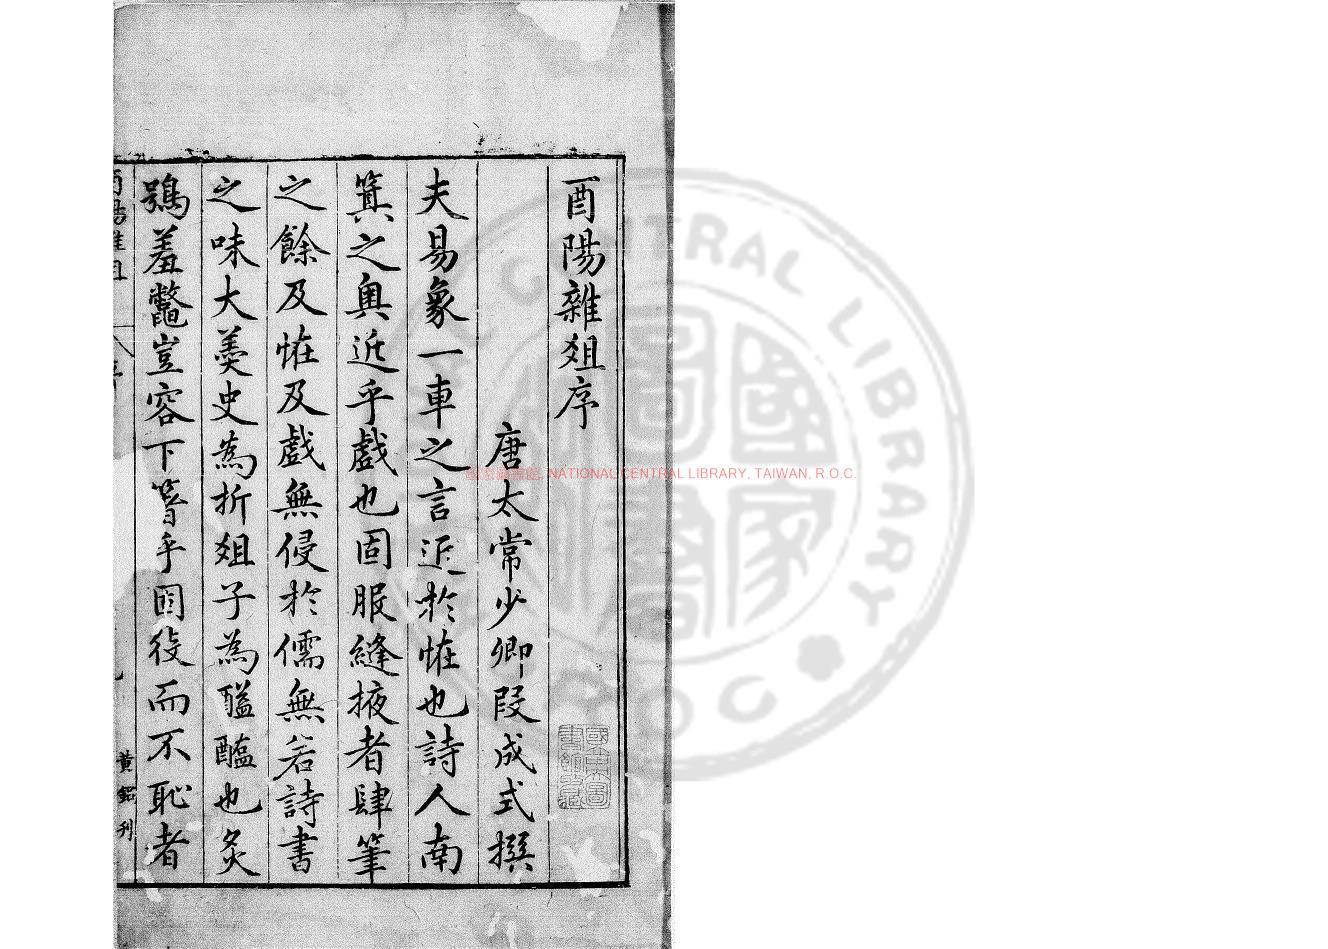 酉陽雜俎序
唐太常少卿段成式撰
夫易象一車之言近於恠也詩人南
箕之奧近乎戲也固服縫掖者肆筆
之餘及恠及戲無侵於儒無若詩書
之味大羹史為折俎子為醯醢也炙
鴞羞鼈豈容下箸乎固役而不恥者
黃鋁刊
國家圖書館, NATIONAL CENTRAL LIBRARY, TAIWAN, R.O.C.
CENTRAL LIBRARY
R.O.C